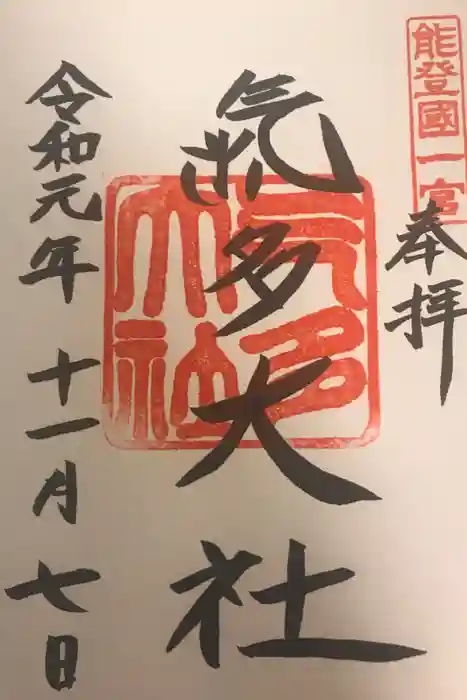 能登國一宮
奉拝
氣多大社
气多大社
令和元年十一月七日